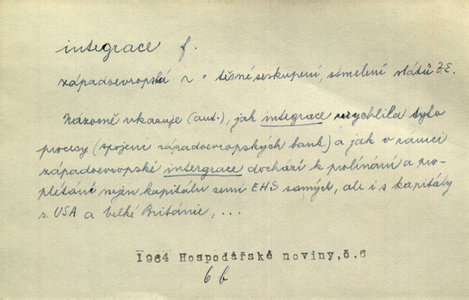 integrace f.
západoevropská ~ = těsné seskupení, semelení států Z.E.
Názorně ukazuje (aut.), jak integrace urychlila tyto
procesy (spojení západoevropských bank) a jak v rámci
západoevropské intergrace dochází k prolínání a pro-
plétání nejen kapitálu zemí EHS samých, ale i s kapitály
z USA a Velké Británie, ...
1964 Hospodářské noviny, č.6
6 b